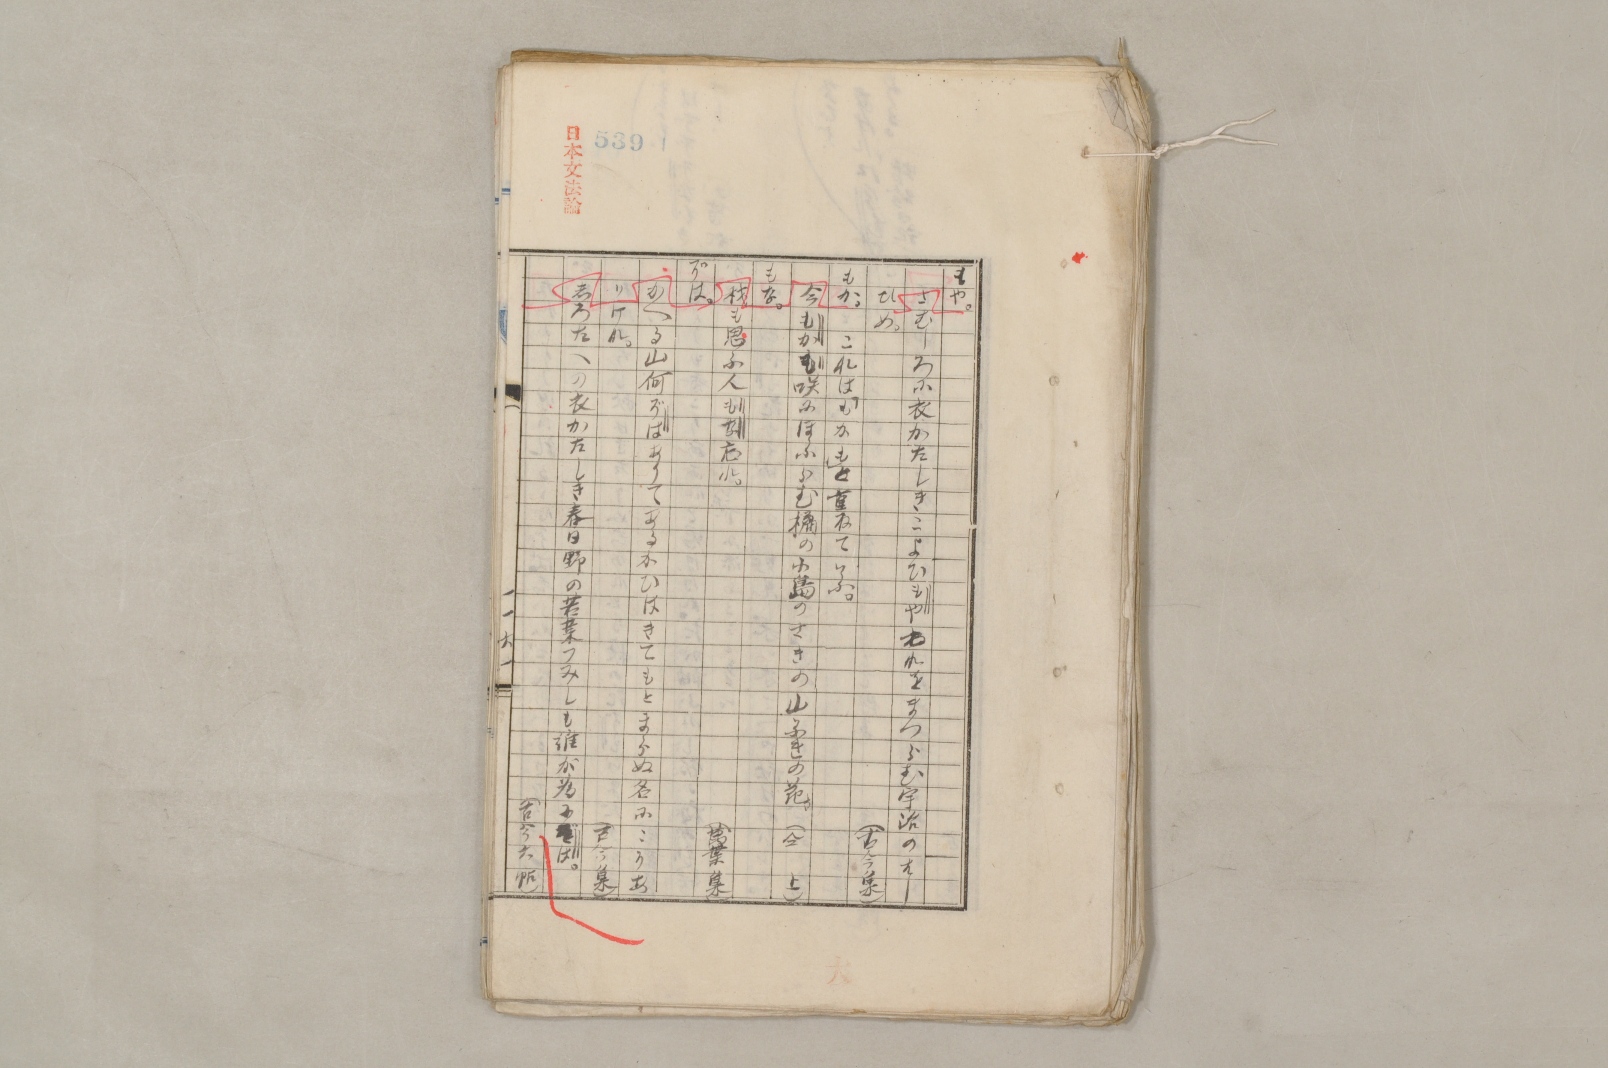 日本文法論
539
もや。
さむしろに衣かたしきこよひもやわれをまつらむ宇治のはし
ひめ。
(古今集)
もか。 これはもかもと重ねていふ。
今もかも咲にほふらむ橘の小島のさきの山ふきの花
(仝 上)
もな。
枕も思ふ人もな忘れ。
(万葉集)
ぞは。
かへる山何ぞはありてあるかひはきてもとまらぬ名にこそあ
りけれ。
(古今集)
しろたへの衣かたしき春日野の若菜つみしも誰が為にぞは。
(古今六帖)